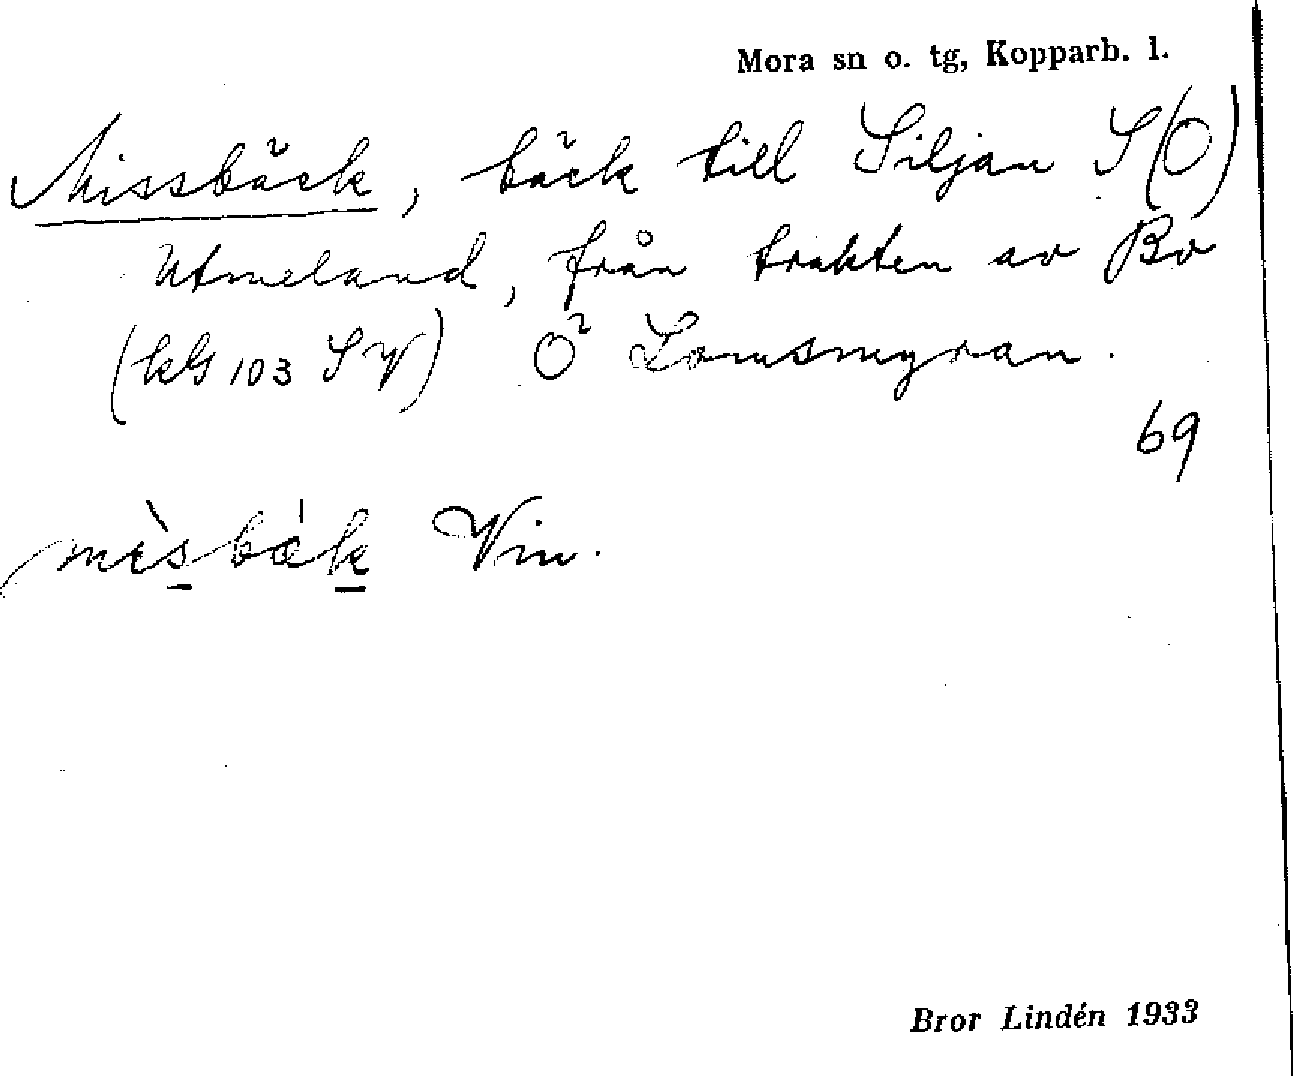 Mora sn o. tg, Kopparb. l.
Missbäck, bäck till Siljan S(O)
Utmeland, från trakten av Bv
(kG 103 SV) O² Lomsmyran.
69
mìsbák Vin.
Bror Lindén 1933